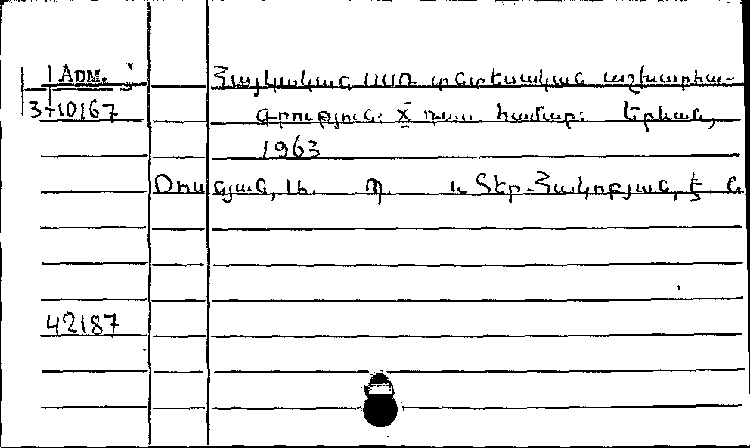 Adm.
Հայկական ՍՍՌ տնտեսական աշխարհա-
3-10167
գրություն: X դաս համար: Երևան,
1963
և Տեր-Հակոբյան, Է Ն
42187